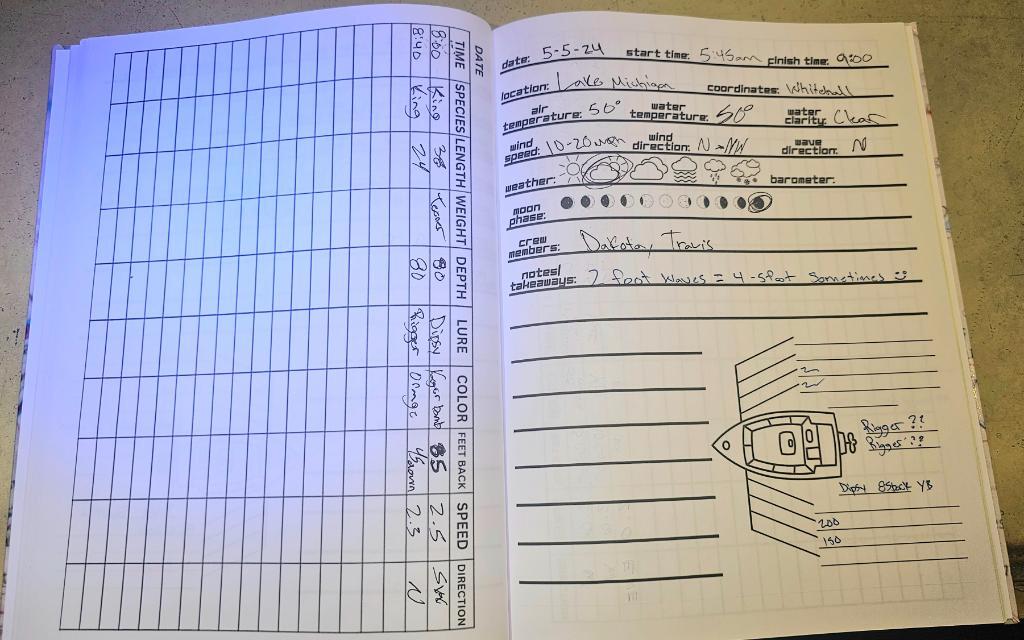 DATE
TIME SPECIES LENGTH WEIGHT DEPTH LURE COLOR FEET BACK SPEED DIRECTION
8:00 King 38 80 Dipsy 85 2.5
8:40 King 24 80 Rigger Orange 45 down 2.3 N
date: 5-5-24 start time: 5:45am finish time: 9:00
location: Lake Michigan coordinates: Whitehall
air temperature: 50° water temperature: 50° water clarity: Clear
wind speed: 10-20 mph wind direction: N-NW wave direction: N
weather: barometer:
moon phase:
crew members: Dakota, Travis
notes/ takeaways: 2 foot waves = 4-5foot Sometimes :)
Rigger ??
Rigger ??
Dipsy 85back
200
150